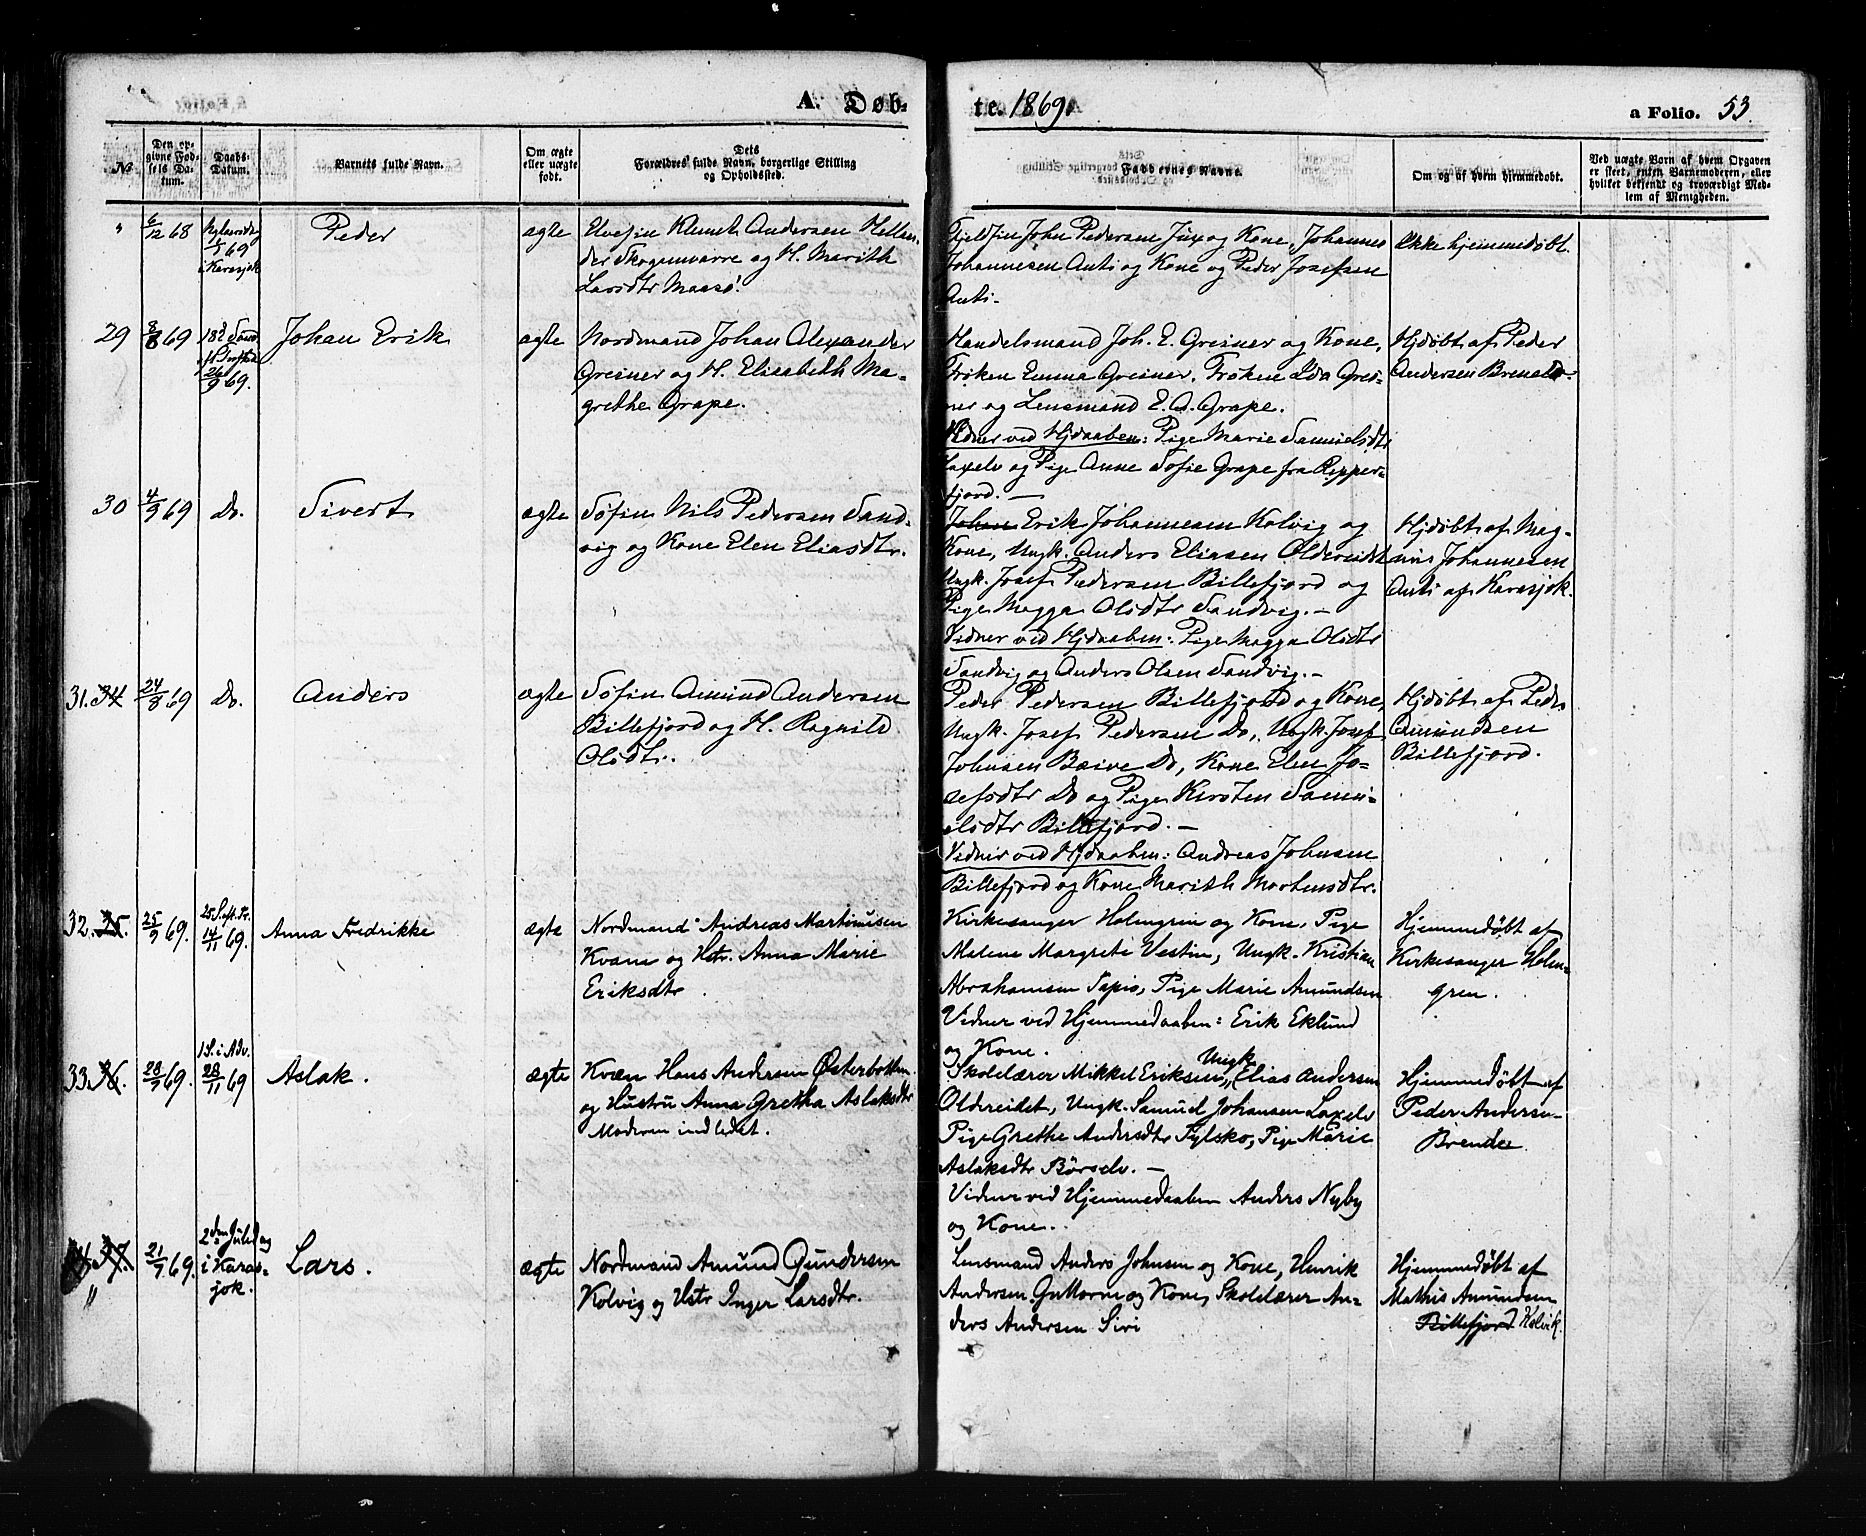 A. Døb-
te. 1869.
a Folio. 53.
No
Den op-
givne Fød-
sels Da-
tum.
Daabs-
Datum.
Barnets fulde Navn.
Om ægte
eller uægte
født.
Dets
Forældres' fulde Navn, borgerlige Stilling
og Opholdssted.
Faddernes Navne.
Om og af hvem hjemmedøbt.
Ved uægte Barn af hvem Opgaven
er skeet, enten Barnemoderen, eller
hvilket bekjendt og troværdigt Med-
lem af Menigheden.
"
6/12 68
1/5 69
i Karasjok
Peder
ægte
Klemet Andersen
Skoganvarre og H. Marith
Larsdtr Maasø.
Fjeldfin John Pedersen Jux og Kone, Johannes
Johannesen Anti og Kone og Peder Josefsen
Anti.
Ikke hjemmedøbt.
29
8/8 69
18d Sønd.
26/9 69.
Johan Erik
ægte
Nordmand Johan Alexander
Greiner og H. Elisabeth Ma-
grethe Grape.
Handelsmand Joh. E. Greiner og Kone,
Frøken Emma Greiner, Frøken Ida Grei-
ner og Lensmand E. A. Grape.
Vidner ved Hjdaaben: Pige Marie Samuelsdtr
Laxelv og Pige Anne Sofie Grape fra Repper-
fjord. —
Hjdøbt af Peder
Andersen Brenden.
30
4/9 69
Do.
Sivert
ægte
Søfin Nils Pedersen Sand-
vig og Kone Elen Eliasdtr.
Johan Erik Johannesen Kolvig og
Kone, Ungk. Anders Eliasen Oldereidet
Ungk. Josef Pedersen Billefjord og
Pige Magga Olsdtr Sandvig. —
Vidner ved Hjdaaben: Pige Magga Olsdtr
Sandvig og Anders Olsen Sandvig. —
Hjdøbt af Mag-
nus Johannesen
Anti af Karasjok.
31. 34
24/8 69
Do.
Anders
ægte
Søfin Amund Andersen
Billefjord og H. Ragnild
Olsdtr.
Peder Pedersen Billefjord og Kone,
Ungk. Josef Pedersen Do, Ungk. Josef
Johnsen Basive Do, Kone Elen Jo-
sefsdtr Do og Pige Kirsten Samu-
elsdtr Billefjord. —
Vidner ved Hjdaaben: Andreas Johnsen
Billefjord og Kone Marith Mortensdtr.
Hjdøbt af Peder
Amundsen
Billefjord.
32. 35.
25/9 69.
25 S. eft. Tr.
14/11 69.
Anna Fredrikke
ægte
Nordmand Andreas Martinusen
Kvam og Hstr. Anna Marie
Eriksdtr
Kirkesanger Holmgren og Kone, Pige
Malene Margrete Vestin, Ungk. Kristian
Abrahamsen Tapio, Pige Marie Amundsen
Vidner ved Hjemmedaaben: Erik Eklund
og Kone.
Hjemmedøbt af
Kirkesanger Holm-
gren.
33. 36.
28/9 69.
1 S. i Adv.
28/11 69
Aslak.
ægte
Kvæn Hans Andersen Østerbotten
og Hustru Anna Gretha Aslaksdtr
Moderen indledet.
Ungk.
Skolelærer Mikkel Eriksen, Elias Andersen
Oldereidet, Ungk. Samuel Johansen Laxelv
Pige Grethe Andersdtr Pylsko, Pige Marie
Aslaksdtr Børselv. —
Vidner ved Hjemmedaaben Anders Nyby
og Kone.
Hjemmedøbt af
Peder Andersen
Brenden
37.
"
21/9 69.
2den Juledag
i Karas-
jok.
Lars.
ægte
Nordmand Amund Gundersen
Kolvig og Hstr Inger Larsdtr.
Lensmand Anders Johnsen og Kone, Henrik
Andersen Guttorm og Kone, Skolelærer An-
ders Andersen Siri
Hjemmedøbt af
Mathis Amundsen
Billefjord Kolvik.